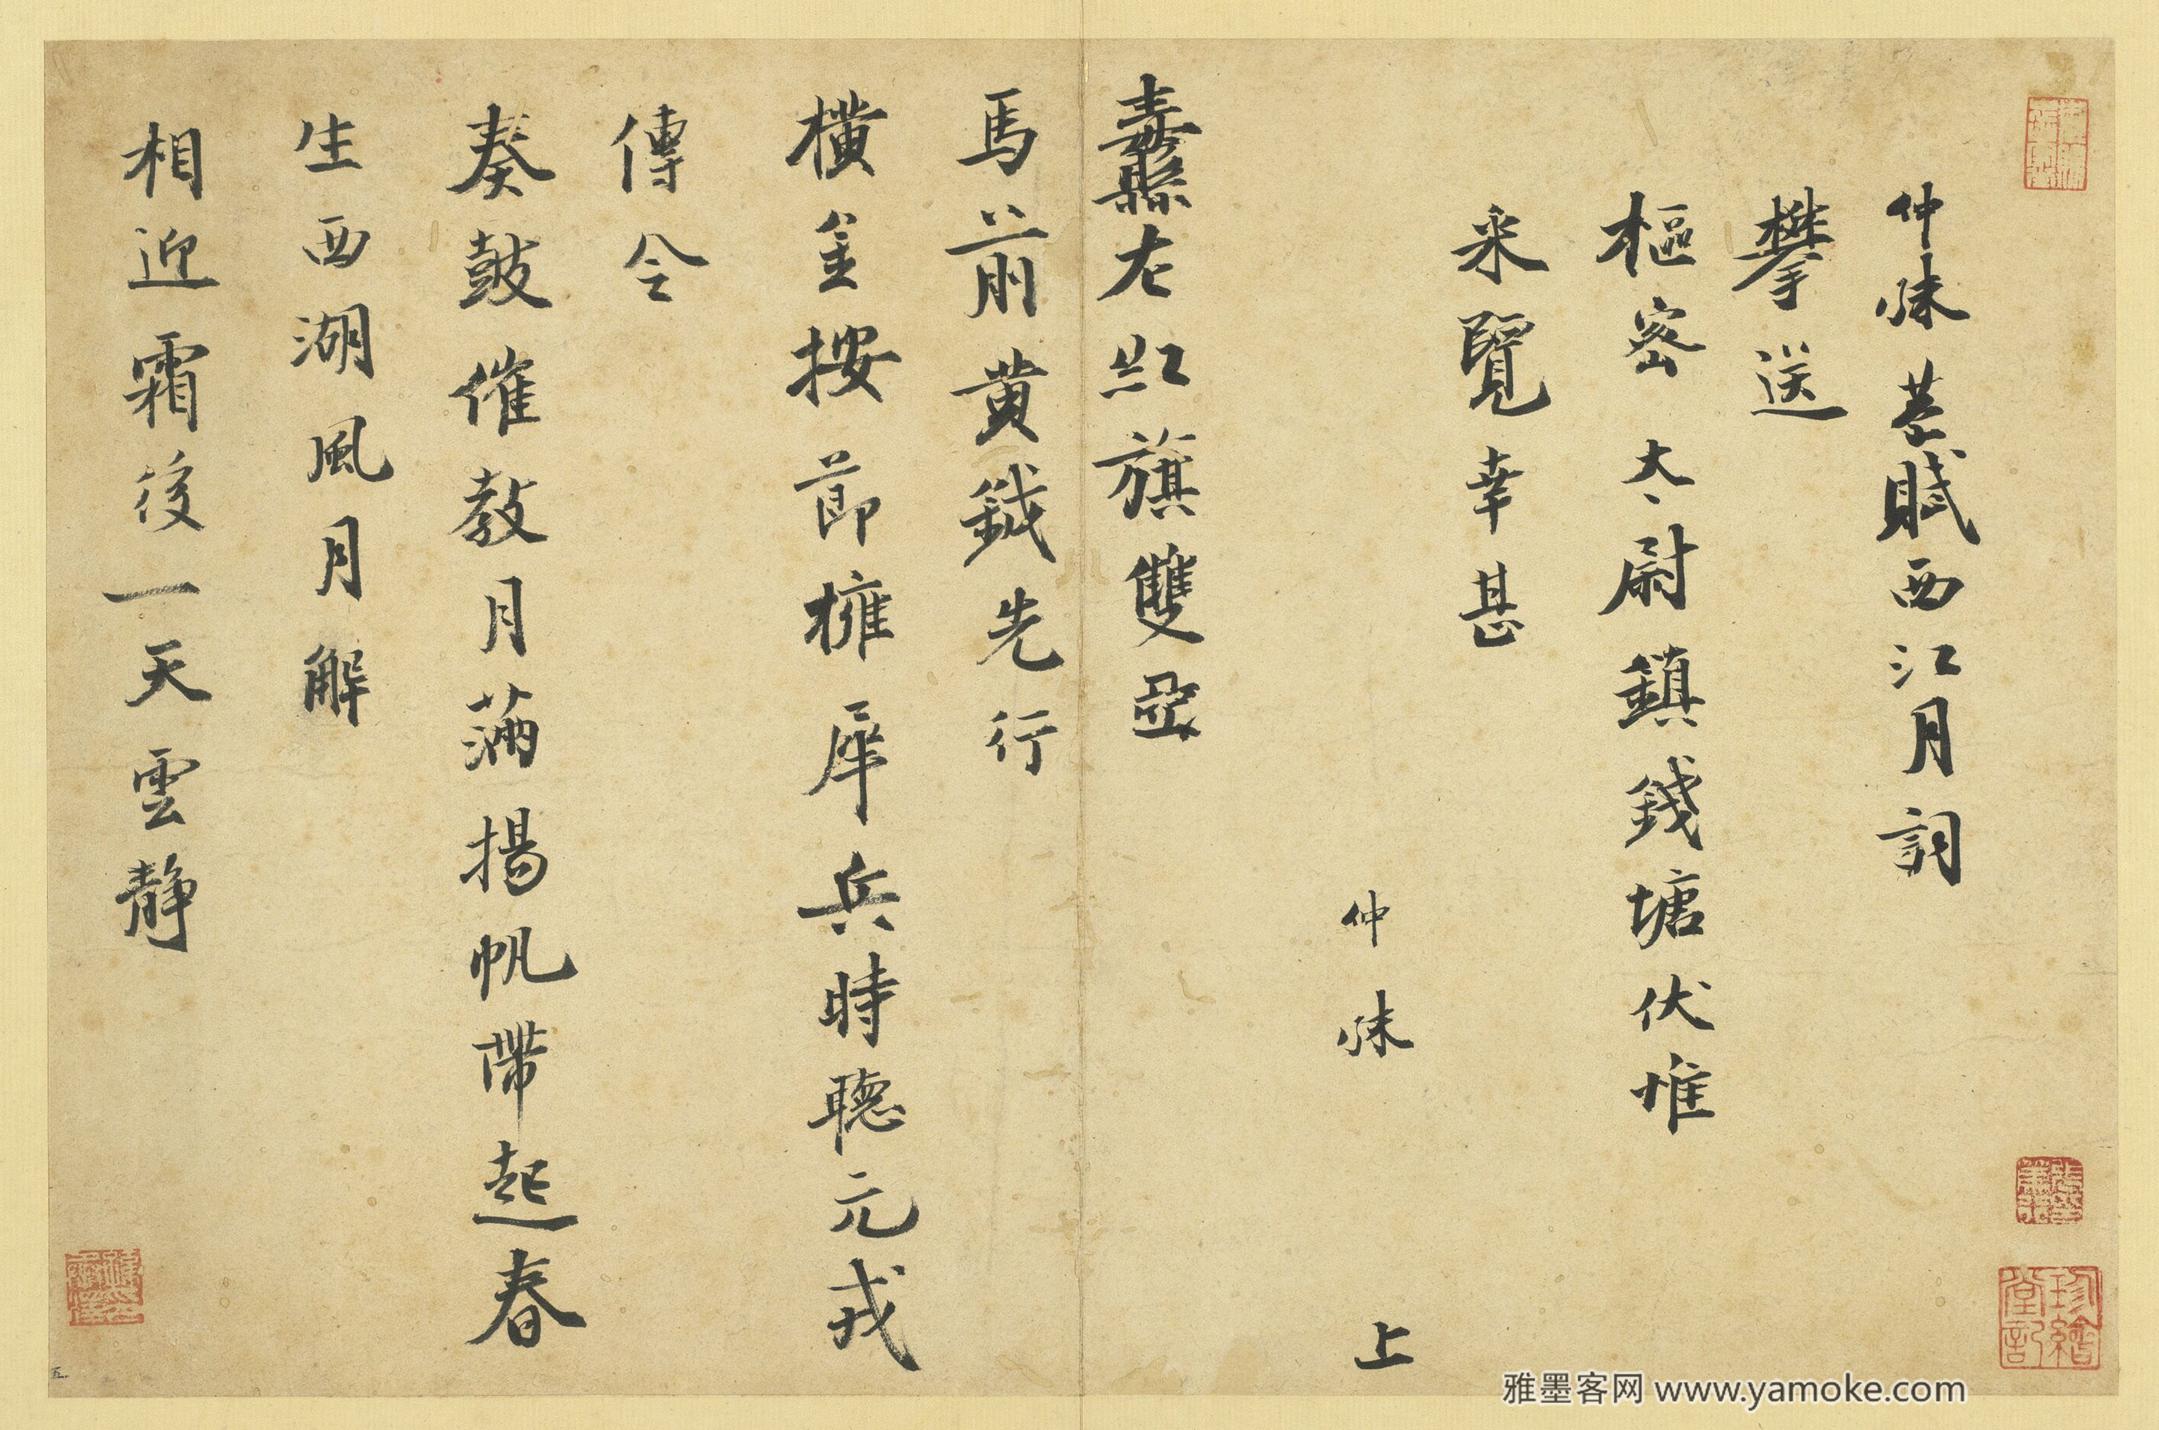 仲殊 皆賦西江月詞
攀送
樞密太尉鎮錢塘伏惟
采覽幸甚
仲殊 上
纛左紅旗雙亞
馬前黃鉞先行
橫金按節擁犀兵時聽元戎
傳令
奏鼓催教月滿揚帆帶起春
生西湖風月解
相迎霜後一天雲靜
珍繪堂記
雅墨客网 www.yamoke.com